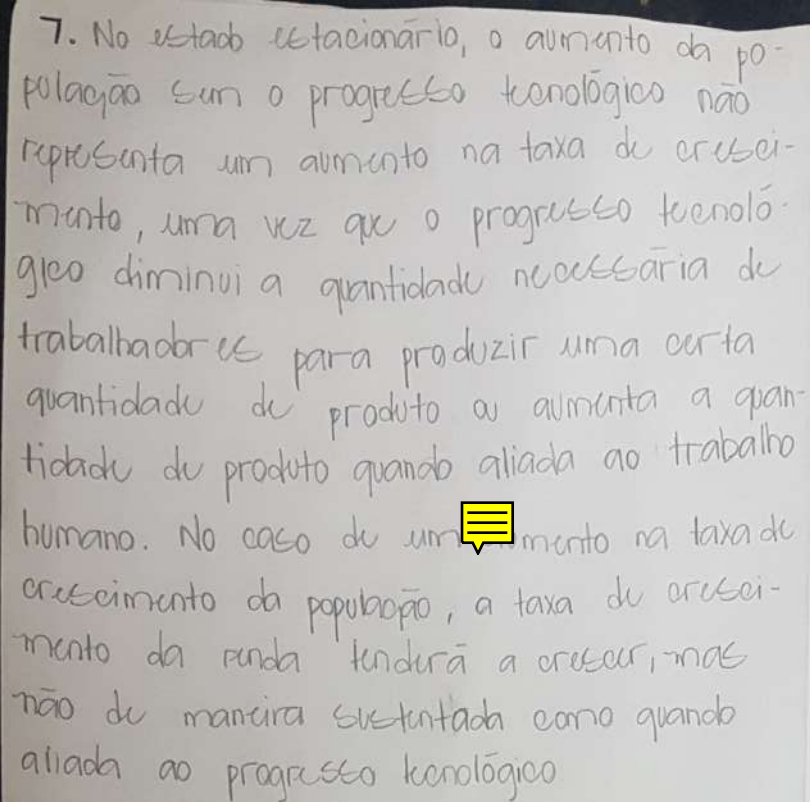 7. No estado estacionário, o aumento da po-
pulação sem o progresso tecnológico não
representa um aumento na taxa de cresci-
mento, uma vez que o progresso tecnoló-
gico diminui a quantidade necessária de
trabalhadores para produzir uma certa
quantidade de produto ou aumenta a quan-
tidade de produto quando aliada ao trabalho
humano. No caso de um mento na taxa de
crescimento da população, a taxa de cresci-
mento da renda tenderá a crescer, mas
não de maneira sustentada como quando
aliada ao progresso tecnológico